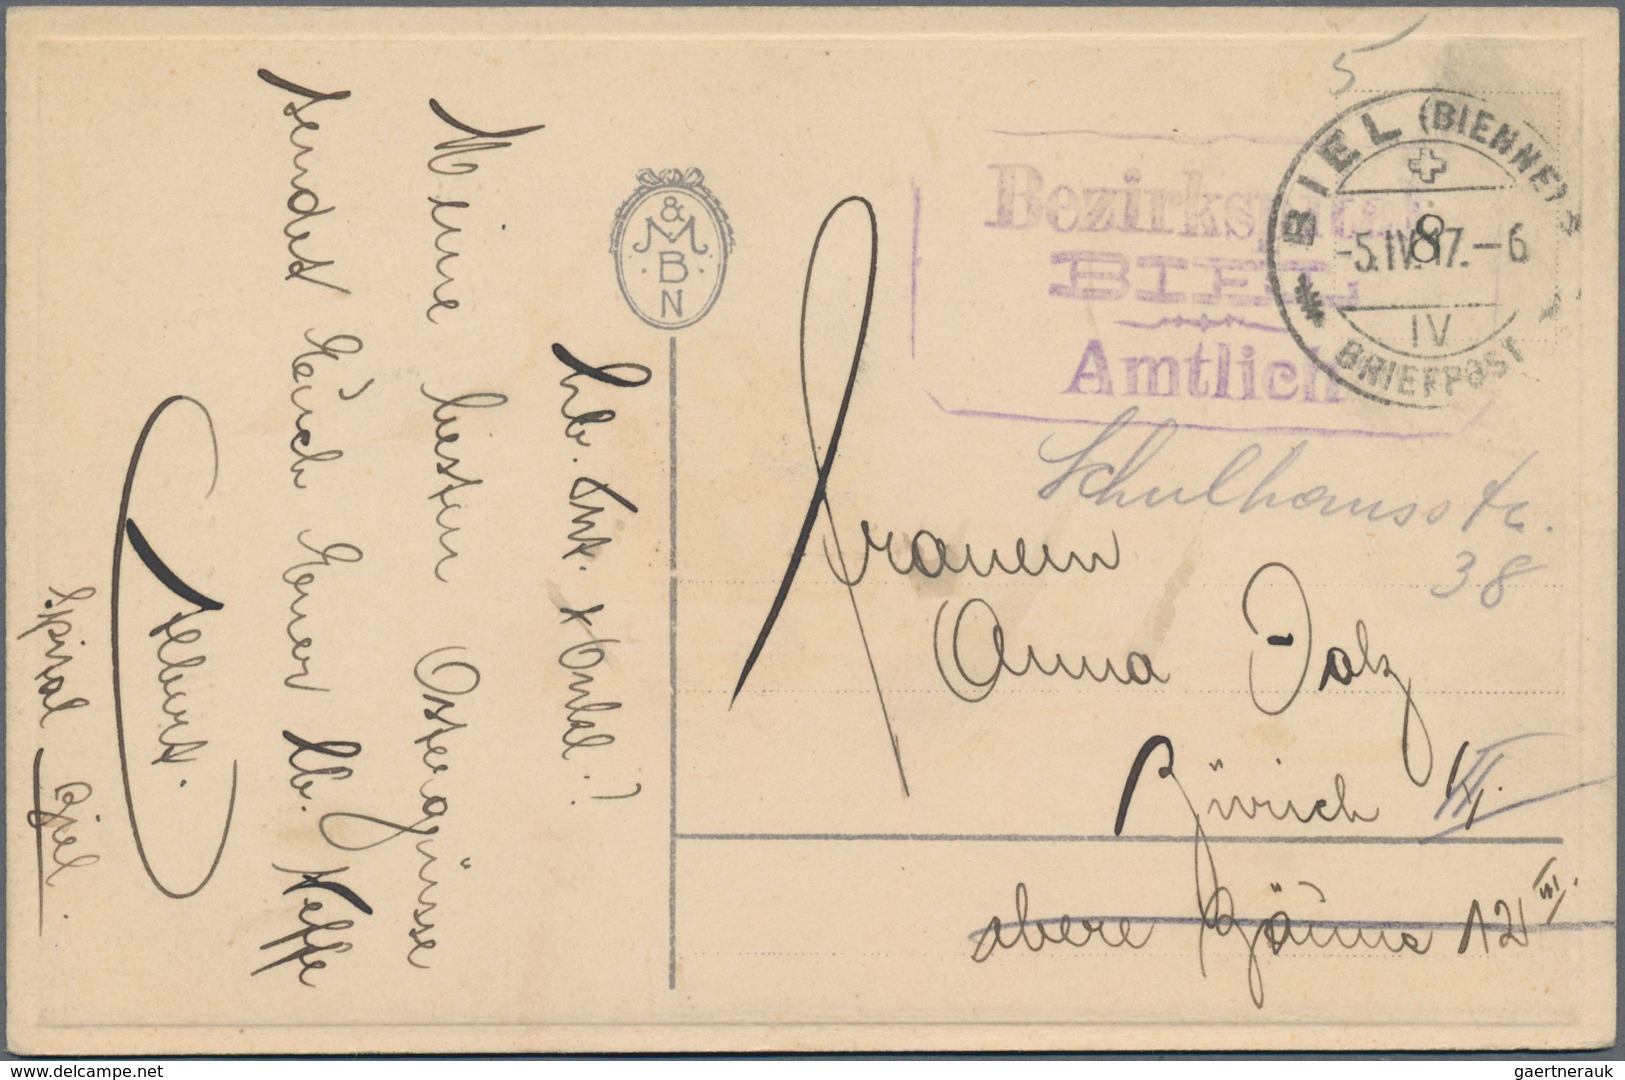 5
BIEL (BIENNE)
-5.IV.17.-6
8
IV
BRIEFPOST
Bezirksspital
BIEL
Amtlich
Schulhausstr.
38
& M B N
Lb. Tnt. & Onkel!
Meine besten Ostergrüsse
sendet Euch Euer lb. Neffe
Albert.
Spital Biel.
Frauen
Anna Volz
Zürich
obere Zäune 12 III.
gaertnerauk